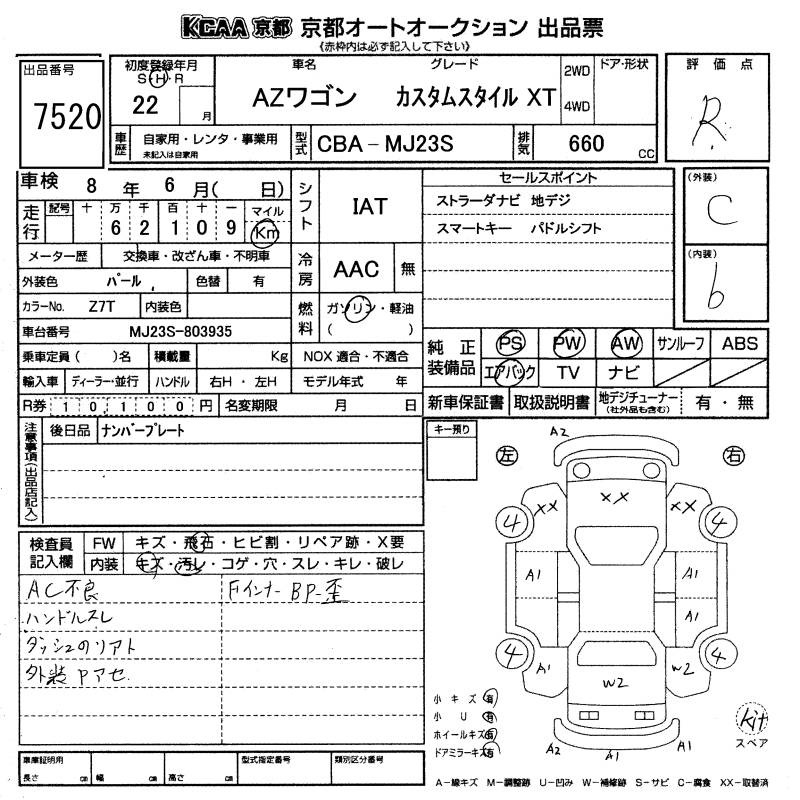 KCAA 京都 京都オートオークション 出品票
《赤枠内は必ず記入して下さい》
出品番号
7520
初度登録年月
S・H・R
22 月
車名 グレード
AZワゴン カスタムスタイル XT
2WD
4WD
ドア・形状
評価点
R
車歴
自家用・レンタ・事業用
未記入は自家用
型式
CBA－MJ23S
排気
660 cc
車検 8年 6月( 日)
走行
記号 十 万 千 百 十 一 マイル
6 2 1 0 9 Km
メーター歴 交換車・改ざん車・不明車
外装色 パール 色替 有
カラーNo. Z7T 内装色
車台番号 MJ23S-803935
乗車定員( )名 積載量 Kg
輸入車 ディーラー・並行 ハンドル 右H・左H
R券 10,100円 名変期限 月 日
シフト
IAT
冷房
AAC 無
燃料
ガソリン・軽油
( )
NOX 適合・不適合
モデル年式 年
セールスポイント
ストラーダナビ 地デジ
スマートキー パドルシフト
(外装)
C
(内装)
b
純正装備品
PS PW AW サンルーフ ABS
エアバック TV ナビ
新車保証書 取扱説明書
地デジチューナー
(社外品も含む)
有・無
注意事項(出品店記入)
後日品 ナンバープレート
キー預り
左
右
A2
XX XX XX
4 4
A1 A1
A1
4 4
A1 W2
W2
A2 A1 A1
検査員記入欄
FW キズ・飛石・ヒビ割・リペア跡・X要
内装 キズ・汚レ・コゲ・穴・スレ・キレ・破レ
AC不良 FインナーBP-歪
ハンドルスレ
ダッシュのリアト
外装Pアセ
小キズ 有
小U 有
ホイールキズ 有
ドアミラーキズ 有
kit
スペア
車庫証明用
長さ cm 幅 cm 高さ cm
型式指定番号
類別区分番号
A－線キズ M－調整跡 U－凹み W－補修跡 S－サビ C－腐食 XX－取替済